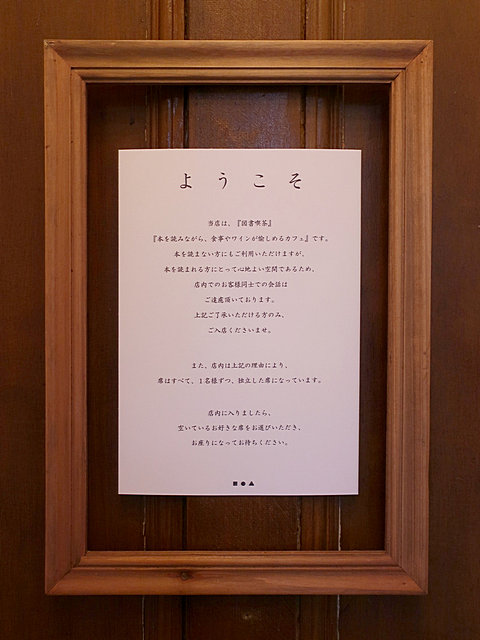 ようこそ
当店は、『図書喫茶』
『本を読みながら、食事やワインが愉しめるカフェ』です。
本を読まない方にもご利用いただけますが、
本を読まれる方にとって心地よい空間であるため、
店内でのお客様同士での会話は
ご遠慮頂いております。
上記ご了承いただける方のみ、
ご入店くださいませ。
また、店内は上記の理由により、
席はすべて、1名様ずつ、独立した席になっています。
店内に入りましたら、
空いているお好きな席をお選びいただき、
お座りになってお待ちください。